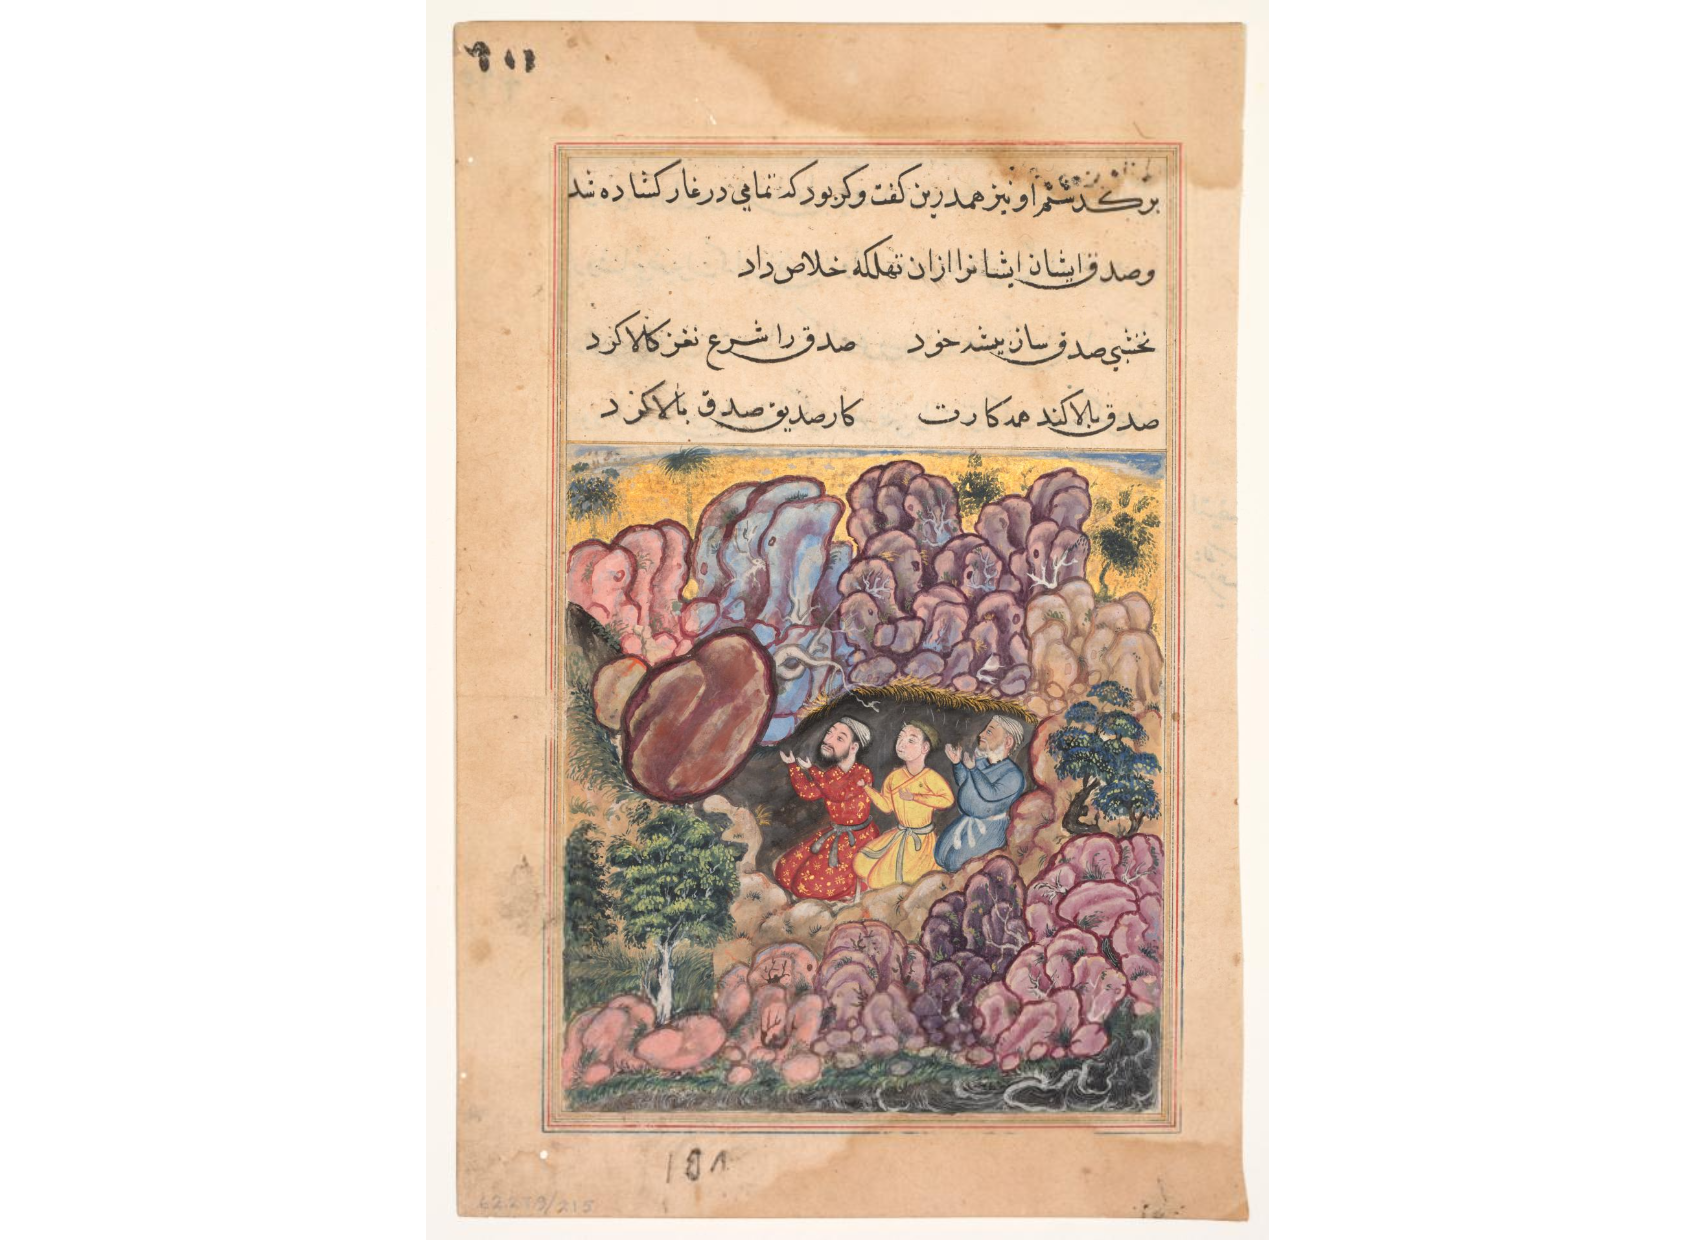 برگذشتم او نیز همدرین گفت وگو بود که تمامی در غار کشاده شد
و صدق ایشان ایشانرا ازان تهلکه خلاص داد
نخشبی صدق سان پیشه خود صدق را شرع نغز کالا کرد
صدق بالا کند همه کارت کار صدیق صدق بالا کرد
62.279/215